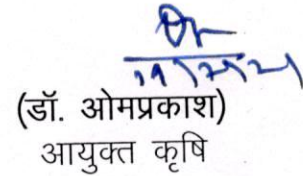 (डॉ. ओमप्रकाश)
आयुक्त कृषि